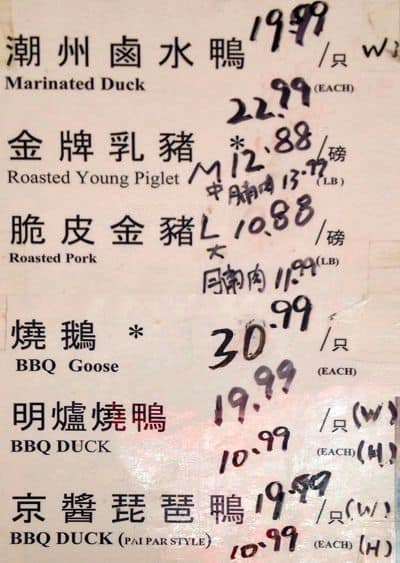 潮州鹵水鴨 19.99 /只 W
Marinated Duck (EACH)
22.99
金牌乳豬 * M 12.88 /磅
Roasted Young Piglet 中 腩肉 13.99 (LB)
脆皮金豬 L 10.88 /磅
Roasted Pork 大 腩肉 11.99 (LB)
燒鵝 * 30.99 /只
BBQ Goose (EACH)
明爐燒鴨 19.99 /只 (W)
BBQ DUCK 10.99 (EACH) (H)
京醬琵琶鴨 19.99 /只 (W)
BBQ DUCK (PAI PAR STYLE) 10.99 (EACH) (H)